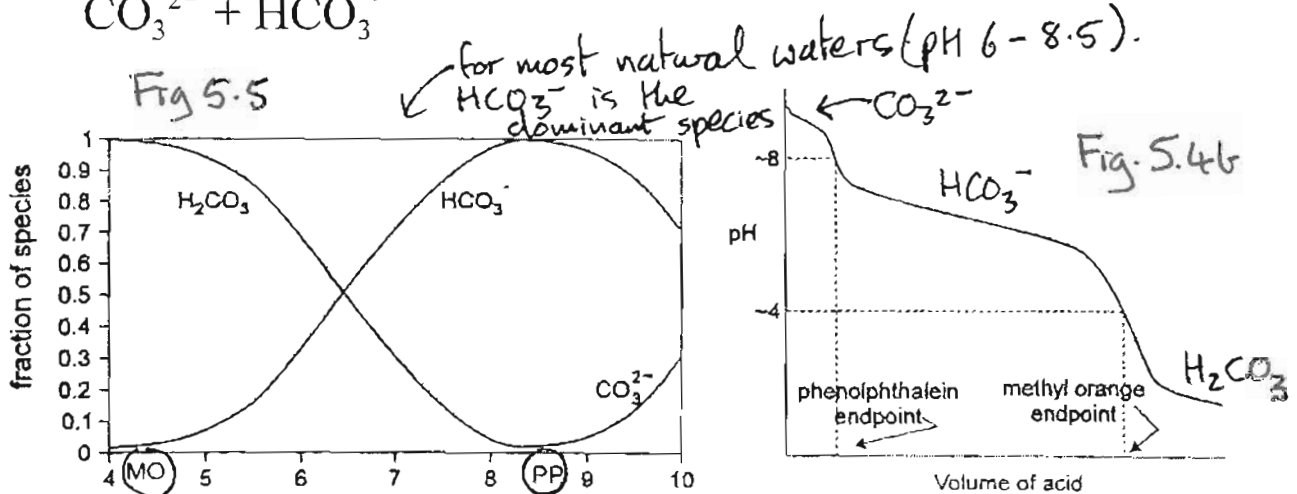 CO₃²⁻ + HCO₃
for most natural waters (pH 6 - 8.5).
HCO₃⁻ is the
dominant species
Fig 5.5
fraction of species
1
0.9
0.8
0.7
0.6
0.5
0.4
0.3
0.2
0.1
0
H₂CO₃
HCO₃⁻
CO₃²⁻
4
MO
5
6
7
8
PP
9
10
CO₃²⁻
Fig. 5.4b
HCO₃⁻
~8
pH
~4
H₂CO₃
phenolphthalein
endpoint
methyl orange
endpoint
Volume of acid